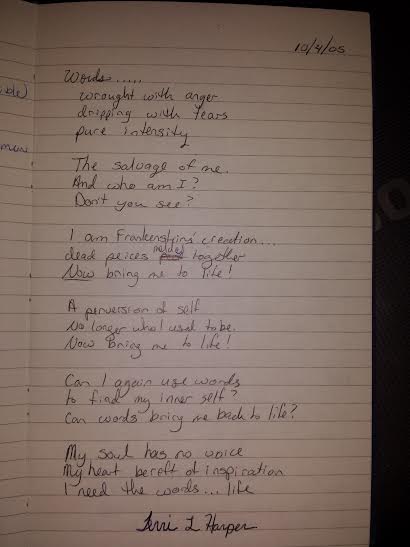 10/4/05
Words.....
wrought with anger
dripping with tears
pure intensity
The salvage of me.
And who am I?
Don't you see?
I am Frankenstein's creation...
dead peices melded together
Now bring me to life!
A perversion of self
No longer who I used to be.
Now Bring me to life!
Can I again use words
to find my inner self?
Can words bring me back to life?
My soul has no voice
My heart bereft of inspiration
I need the words... life
Terri L Harper